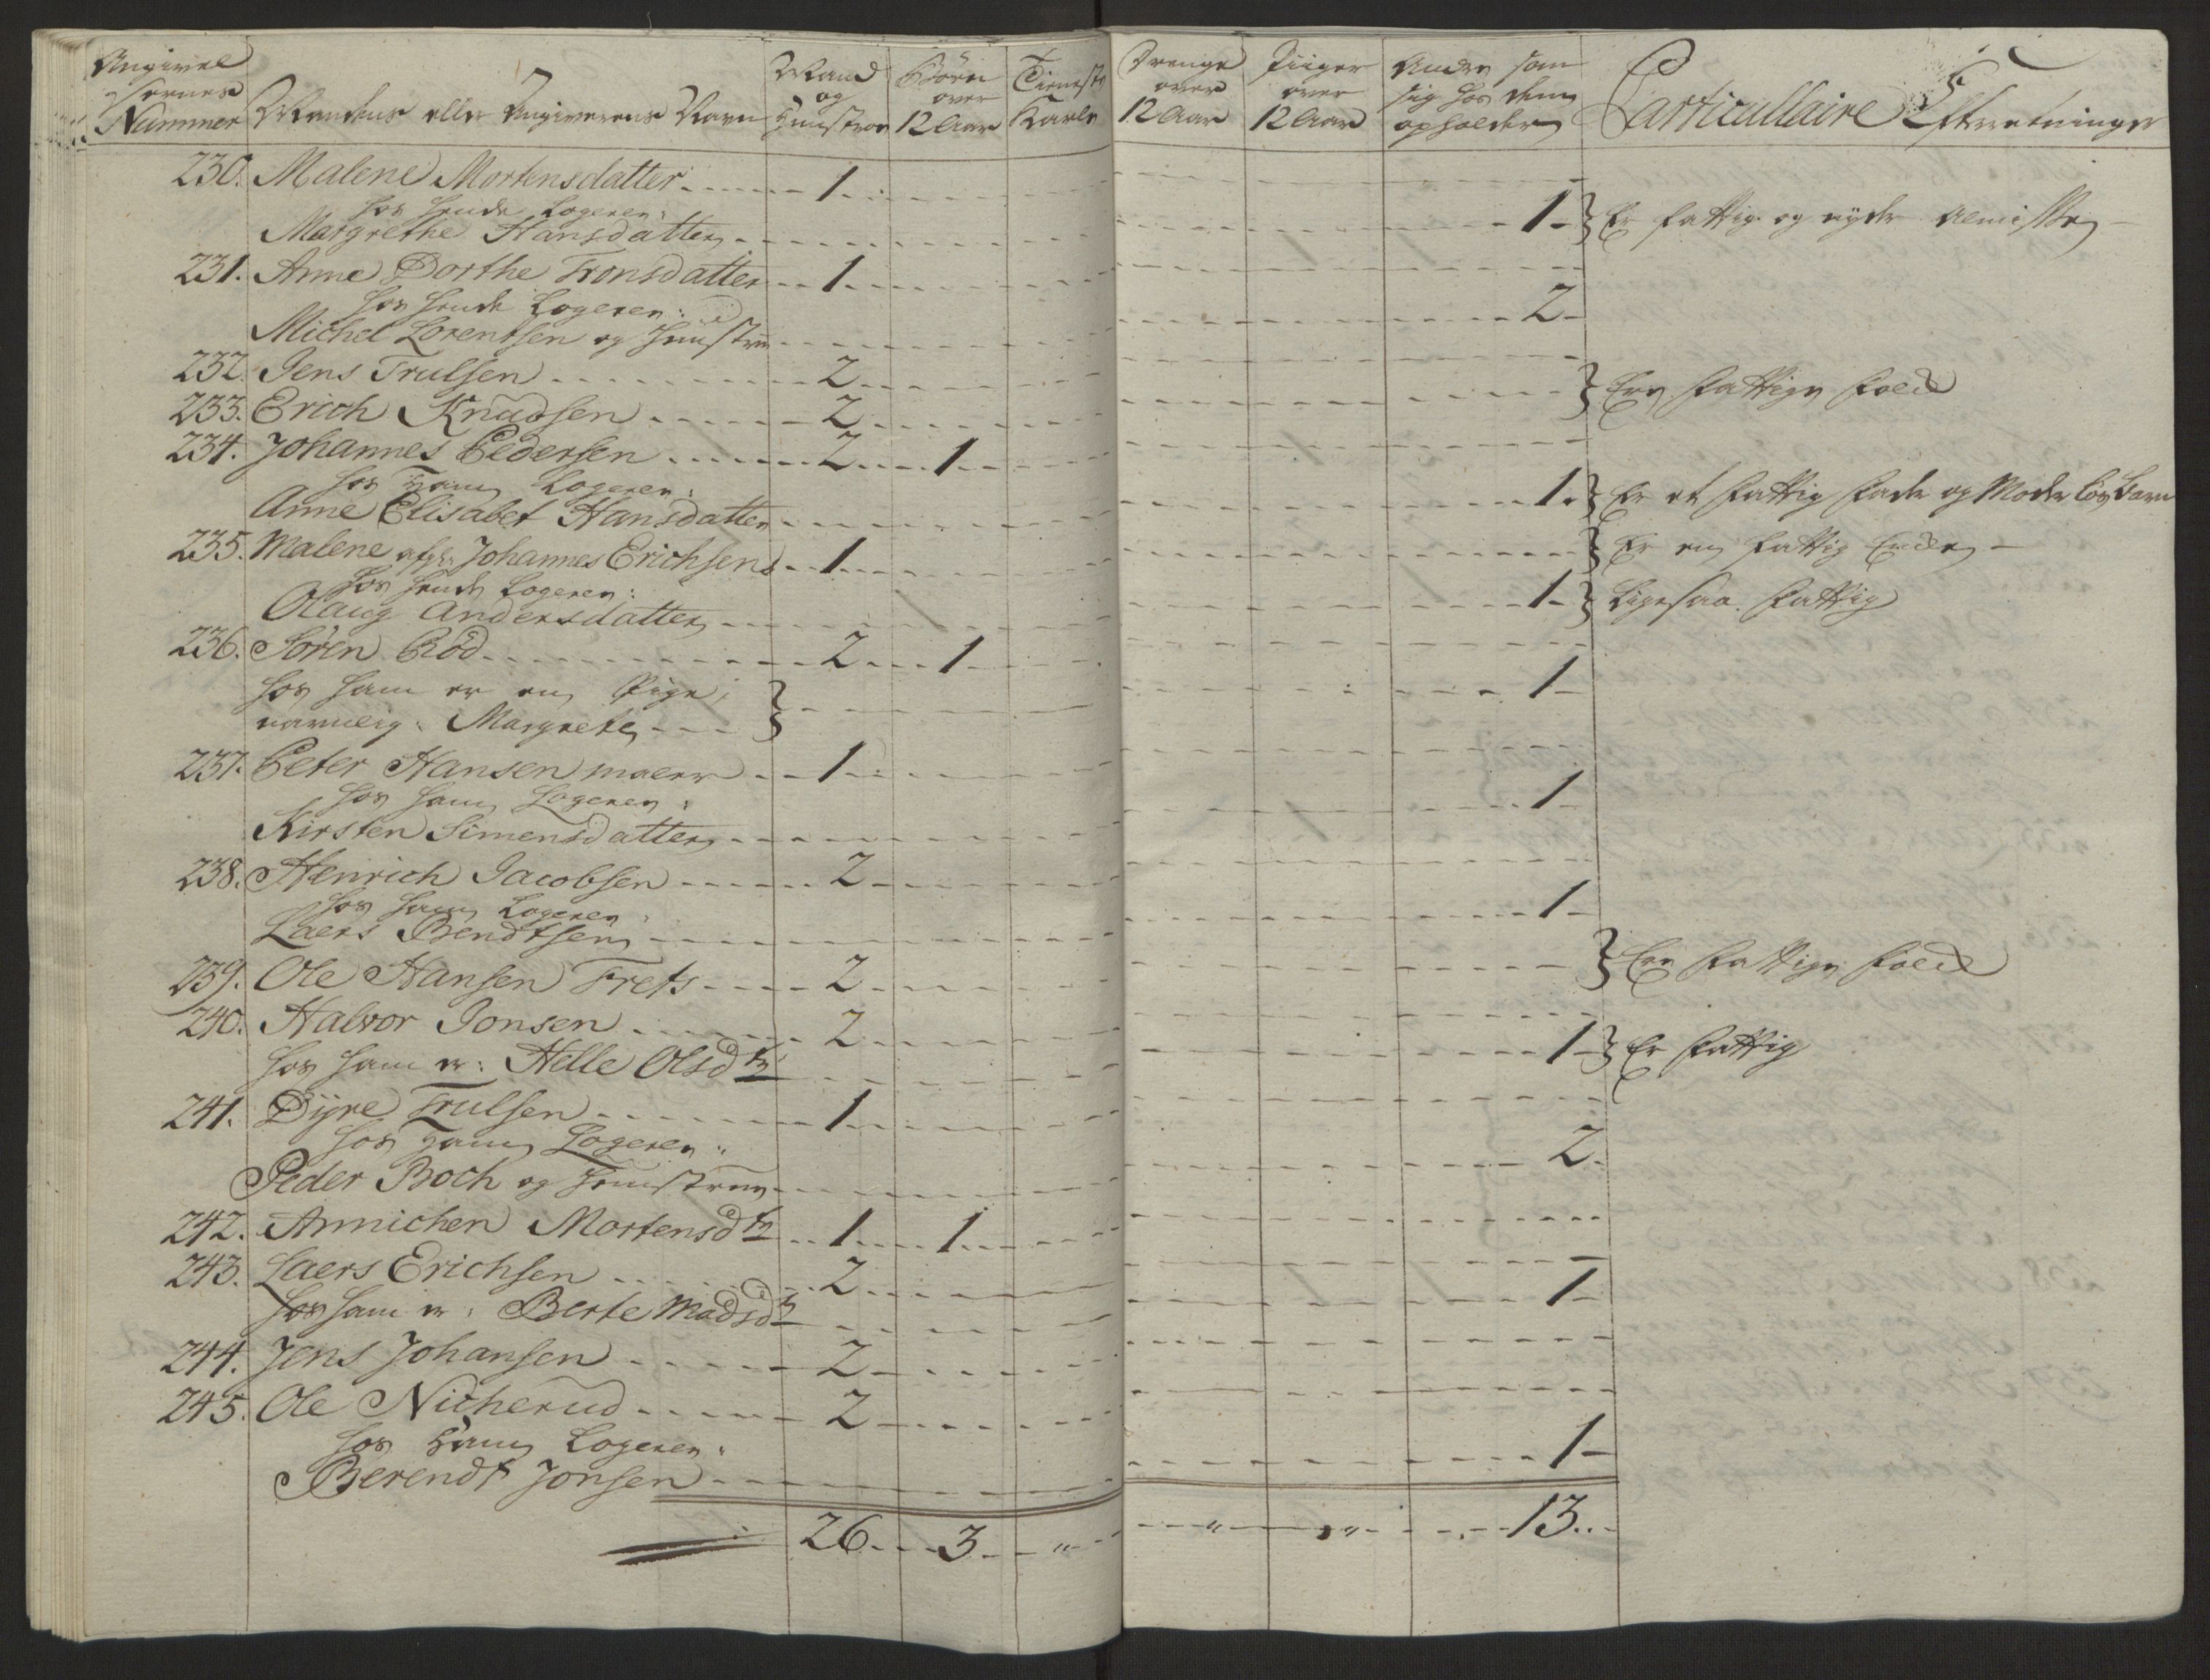 Angivel
sernes
Nummer
Mandens eller Angiverens Navn
Mand
og
Hustroe
Børn
over
12 Aar
Tieneste
Karle
Drenge
over
12 Aar
Piiger
over
12 Aar
Andre som
sig hos dem
opholder
Particullaire Efterretninger
230. Malene Mortensdatter 1
hos hende Logerer:
Margrethe Hansdatter 1 Er fattig og nyder Almisse
231. Anne Dorthe Tronsdatter 1
hos hende Logerer: 2
Michel Lorentsen og Hustrue
232. Jens Trulsen 2
233. Erich Knudsen 2 Ere fattige Folck
234. Johannes Pedersen 2 1
hos Ham Logerer:
Anne Elisabet Hansdatter 1 Er et fattig Fader og Moder løs Barn
235. Malene afgl. Johannes Erichsens 1 Er en fattig Encke
hos hende Logerer:
Olaug Andersdatter 1 Ligesaa fattig
236. Søren Röd 2 1
hos ham er en Pige; 1
navnlig: Margrete
237. Peter Hansen 1
hos ham Logerer: 1
Kirsten Simensdatter
238. Henrich Jacobsen 2
hos ham Logerer: 1
Laers Bendtsen
239. Ole Hansen Frets 2 Ere fattige Folck
240. Halvor Jonsen 2
hos ham er: Helle Olsdtr 1 Er fattig
241. Dyre Trulsen 1
hos Ham Logerer: 2
Peder Boch og Hustrue
242. Annichen Mortensdtr 1 1
243. Laers Erichsen 2
hos ham er: Berte Madsdtr 1
244. Jens Johansen 2
245. Ole Nicherud 2
hos Ham Logerer: 1
Berendt Jonsen
26 3 " " " 13